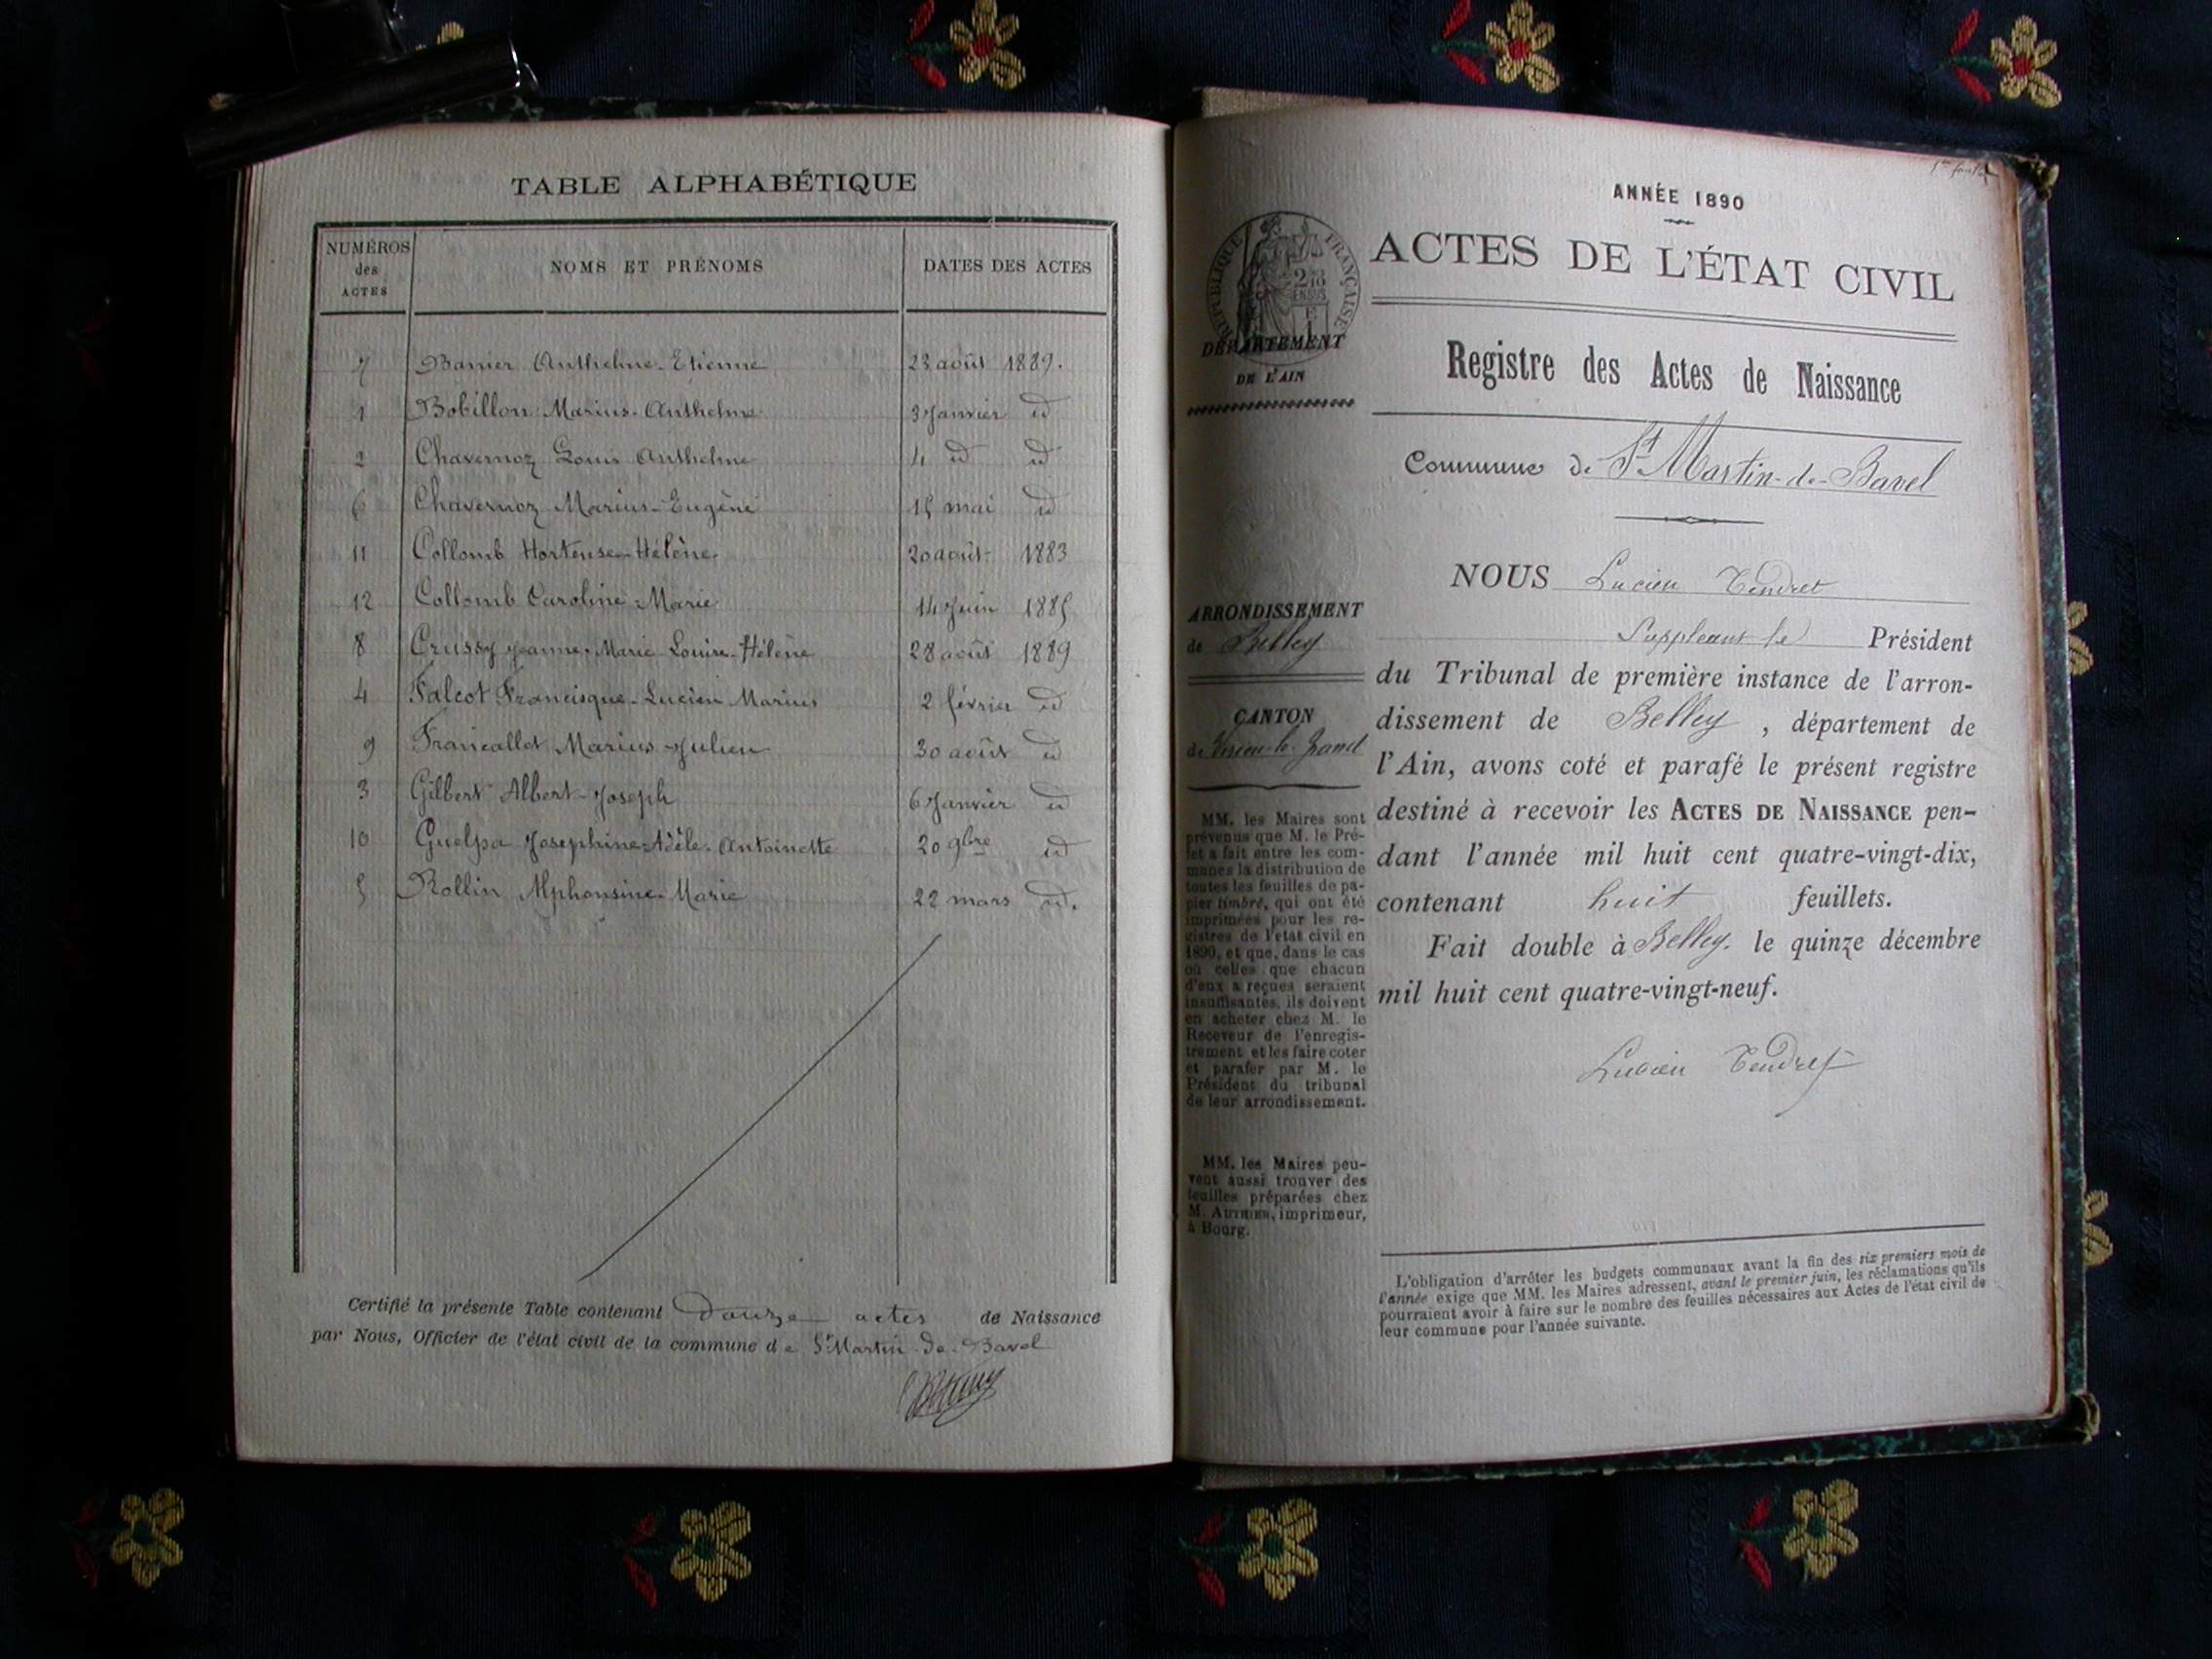 TABLE ALPHABÉTIQUE
NUMÉROS des ACTES
NOMS ET PRÉNOMS
DATES DES ACTES
7 Barrier Anthelme-Etienne 23 août 1889.
1 Bobillon Marius-Anthelme 3 Janvier id
2 Chavernoz Louis Anthelme 4 id id
6 Chavernoz Marius-Eugène 15 mai id
11 Collomb Hortense-Hélène 20 août 1883
12 Collomb Caroline-Marie 14 Juin 1885
8 Crussy Jeanne-Marie-Louise-Hélène 28 août 1889
4 Falcot Francisque-Lucien Marius 2 février id
9 Francallet Marius-Julien 30 août id
3 Gilbert Albert-Joseph 6 Janvier id
10 Guelpa Josephine-Adèle-Antoinette 20 9bre id
5 Rollin Alphonsine-Marie 22 mars id.
Certifié la présente Table contenant Douze actes de Naissance
par Nous, Officier de l'état civil de la commune de St Martin-de-Bavel
ANNÉE 1890
ACTES DE L'ÉTAT CIVIL
RÉPUBLIQUE FRANÇAISE
DÉPARTEMENT
DE L'AIN
Registre des Actes de Naissance
Commune de St Martin-de-Bavel
NOUS Lucien Tendret
Suppléant le Président
du Tribunal de première instance de l'arron-
dissement de Belley, département de
l'Ain, avons coté et parafé le présent registre
destiné à recevoir les ACTES DE NAISSANCE pen-
dant l'année mil huit cent quatre-vingt-dix,
contenant huit feuillets.
Fait double à Belley. le quinze décembre
mil huit cent quatre-vingt-neuf.
Lucien Tendret
ARRONDISSEMENT
de Belley
CANTON
de Virieu-le-Grand
MM. les Maires sont
prévenus que M. le Pré-
fet a fait entre les com-
munes la distribution de
toutes les feuilles de pa-
pier timbré, qui ont été
imprimées pour les re-
gistres de l'état civil en
1890, et que, dans le cas
où celles que chacun
d'eux a reçues seraient
insuffisantes, ils doivent
en acheter chez M. le
Receveur de l'enregis-
trement et les faire coter
et parafer par M. le
Président du tribunal
de leur arrondissement.
MM. les Maires peu-
vent aussi trouver des
feuilles préparées chez
M. AUTHIER, imprimeur,
à Bourg.
L'obligation d'arrêter les budgets communaux avant la fin des six premiers mois de
l'année exige que MM. les Maires adressent, avant le premier juin, les réclamations qu'ils
pourraient avoir à faire sur le nombre des feuilles nécessaires aux Actes de l'état civil de
leur commune pour l'année suivante.